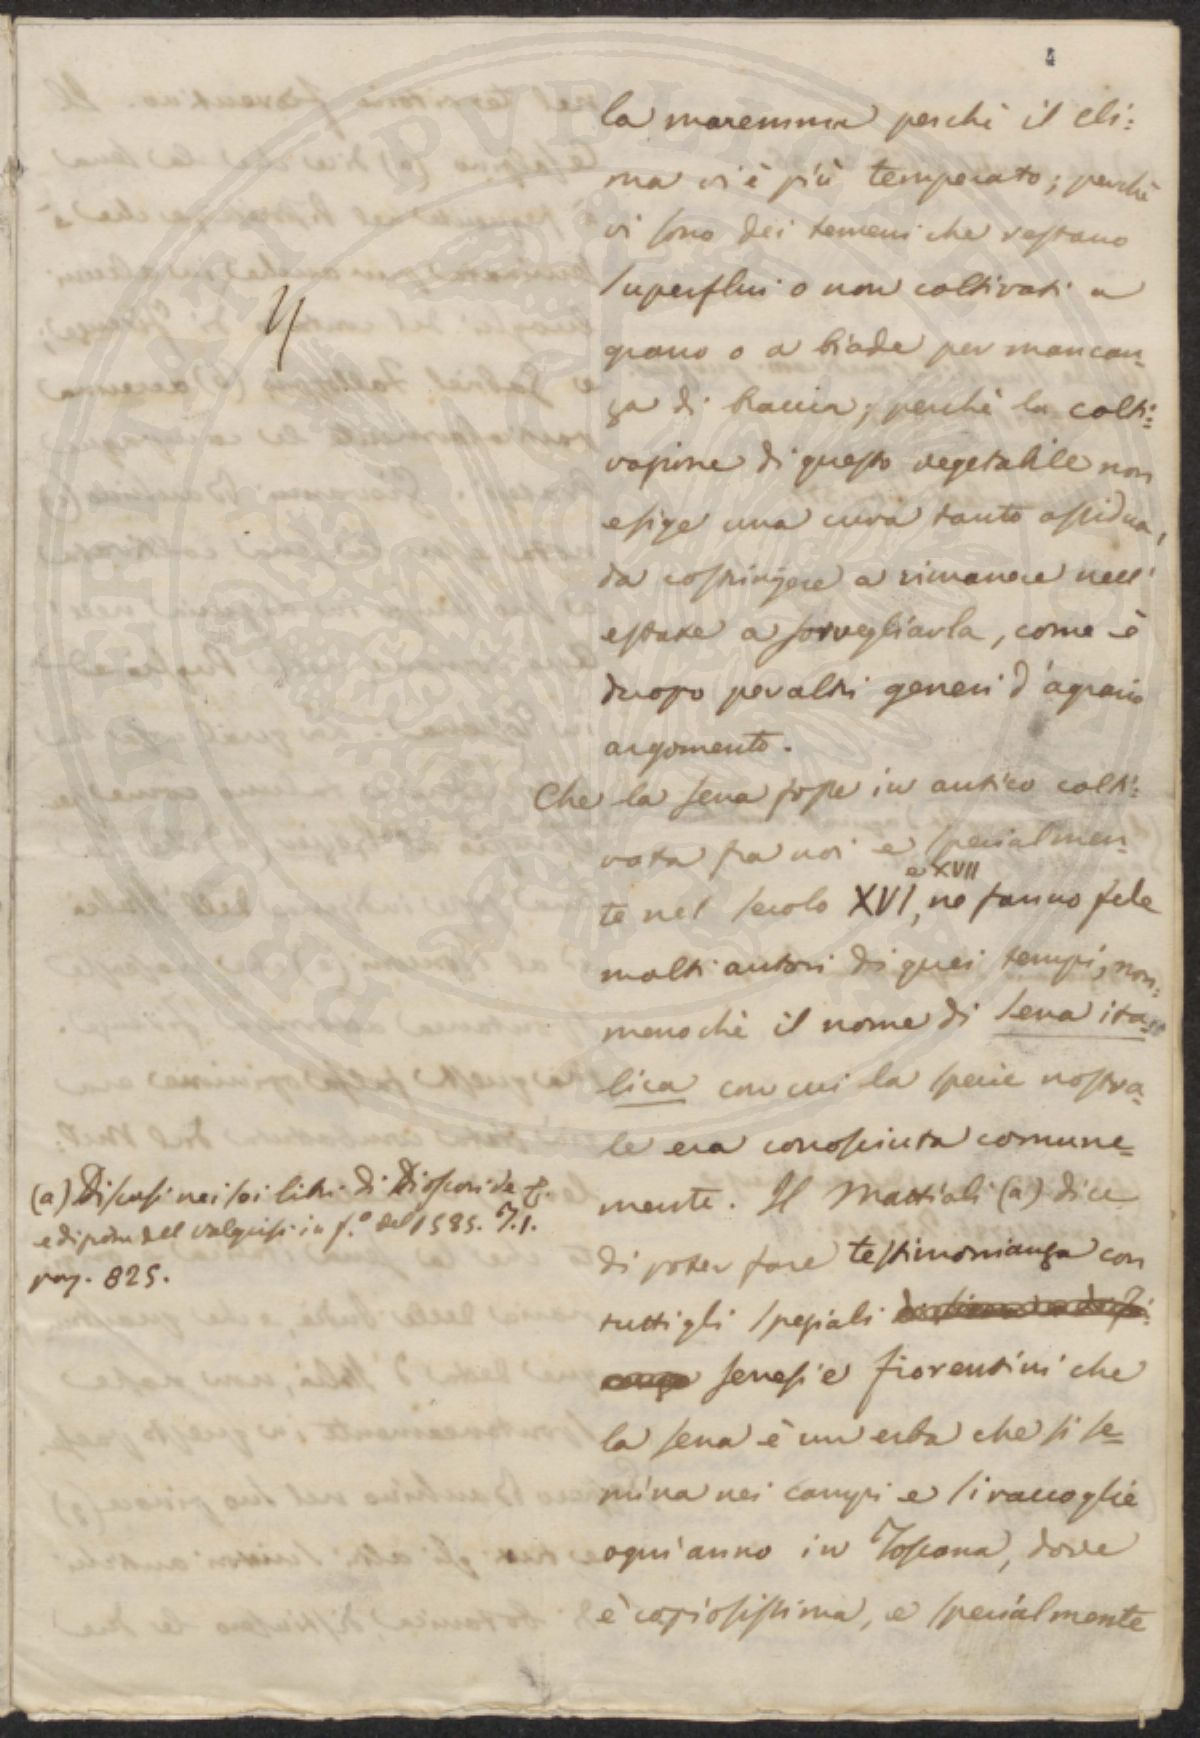 4
la maremma perchè il cli:
ma vi è più temperato; perchè
vi sono dei terreni che restano
superflui o non coltivati a
grano o a biade per mancan-
za di braccia; perchè la colti:
vazione di questo vegetabile non
esige una cura tanto assidua,
da costringere a rimanere nell'
estate a sorvegliarla, come è
duopo per altri generi d'agrario
argomento.
Che la sena fosse in antico colti:
vata fra noi e specialmen-
e XVII
te nel secolo XVI, ne fanno fede
molti autori di quei tempi, non-
menochè il nome di sena ita-
lica con cui la specie nostra-
le era conosciuta comune-
mente. Il Mattioli (a) dice
di poter fare testimonianza con
tutti gli speziali
senesi e fiorentini che
la sena è un erba che si se-
mina nei campi e si raccoglie
ogni anno in Toscana, dove
è copiosissima, e specialmente
(a) Discorsi nei sei libri di Dioscoride &.
ediz. del Valgrisi in f.º del 1585. T.1.
pag. 825.
PVBLICAE